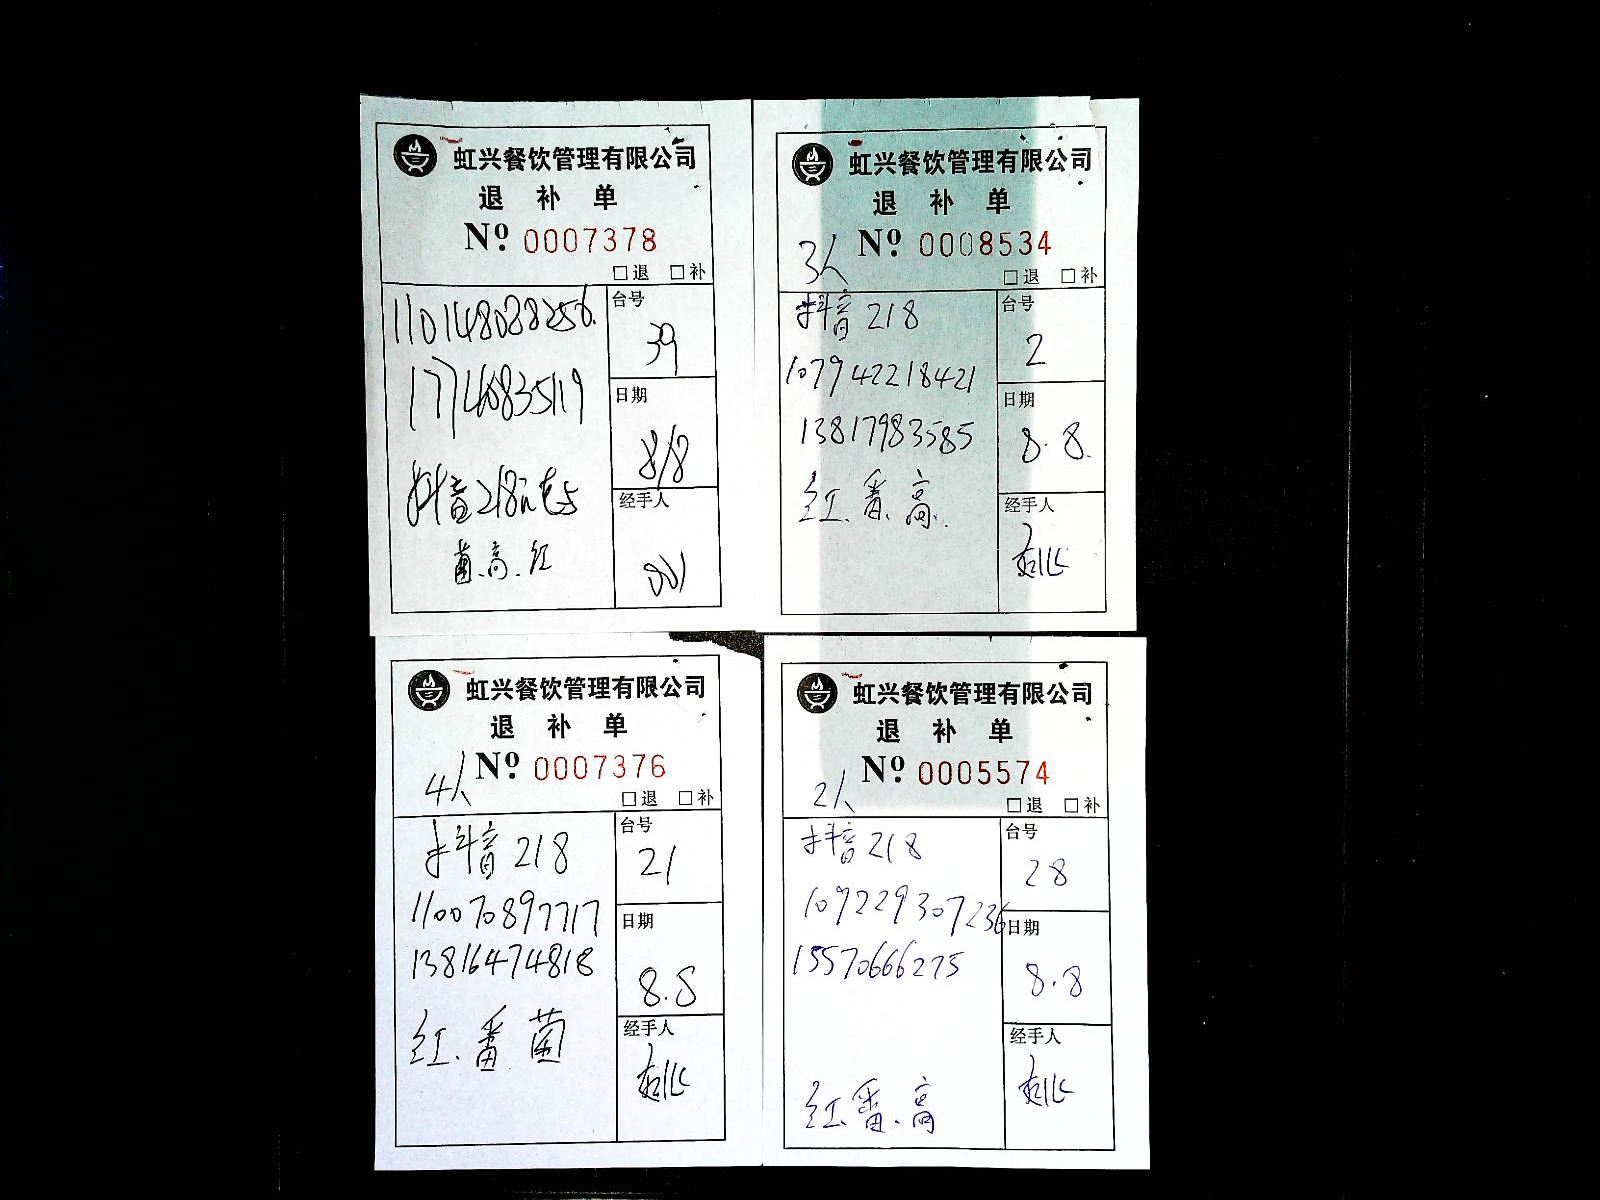 虹兴餐饮管理有限公司
退 补 单
Nº 0007378
□退 □补
110148088256.
17740835119
抖音218元套
菌.高.红
台号
39
日期
8/8
经手人
001
虹兴餐饮管理有限公司
退 补 单
3人 Nº 0008534
□退 □补
抖音218
107942218421
13817983585
红.番.高.
台号
2
日期
8.8.
经手人
虹兴餐饮管理有限公司
退 补 单
4人 Nº 0007376
□退 □补
抖音218
110070897717
13816474818
红.番菌
台号
21
日期
8.8
经手人
虹兴餐饮管理有限公司
退 补 单
2人 Nº 0005574
□退 □补
抖音218
109229307236
15570666275
红.番.高
台号
28
日期
8.8
经手人